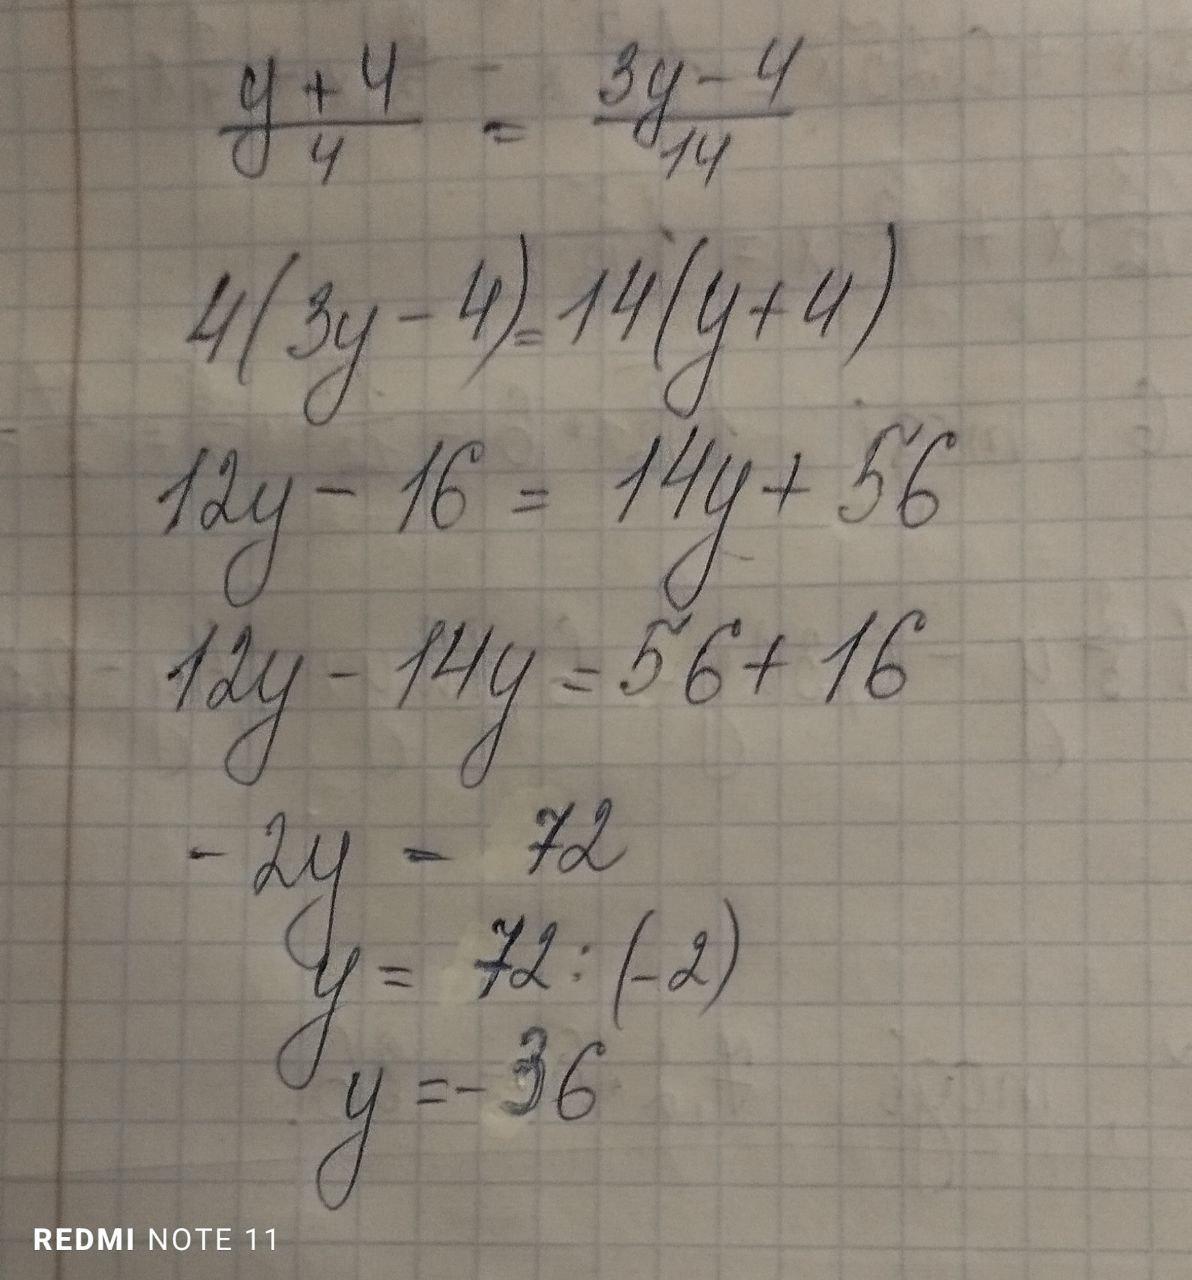 y + 4 / 4 = 3y - 4 / 14
4(3y - 4) = 14(y + 4)
12y - 16 = 14y + 56
12y - 14y = 56 + 16
- 2y = 72
y = 72 : (-2)
y = - 36
REDMI NOTE 11